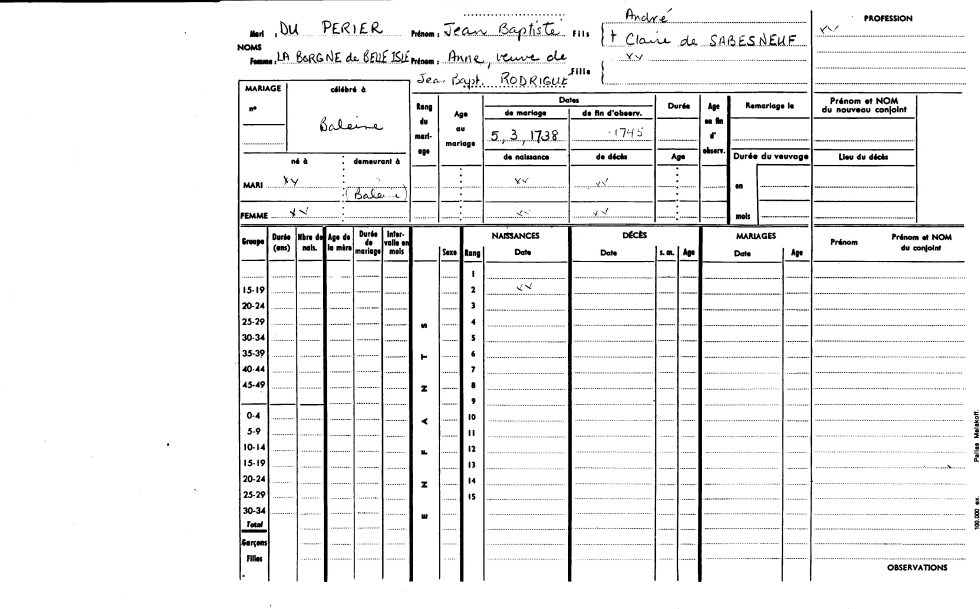 André
PROFESSION
Mari , DU PERIER Prénom : Jean Baptiste Fils † Claire de SABESNEUF
NOMS
Femme : LA BORGNE de BELLE ISLE Prénom : Anne, veuve de
Jean Bapt. RODRIGUE Fille
MARIAGE célébré à
n°
Baleine
né à demeurant à
MARI xx (Baleine)
FEMME xx
Rang du mariage
Age au mariage
Dates
de mariage de fin d'observ.
5, 3, 1738 -1745
de naissance de décès
xx xx
xx xx
Durée
Age
Age en fin d' observ.
Remariage le
Durée du veuvage
en
mois
Prénom et NOM du nouveau conjoint
Lieu du décès
Groupe Durée (ans) Nbre de nais. Age de la mère Durée de mariage Inter-valle en mois
ENFANTS
Sexe Rang
NAISSANCES DÉCÈS MARIAGES
Date Date s. m. Age Date Age
Prénom Prénom et NOM du conjoint
1
15-19 2 xx
20-24 3
25-29 4
30-34 5
35-39 6
40-44 7
45-49 8
9
0-4 10
5-9 11
10-14 12
15-19 13
20-24 14
25-29 15
30-34
Total
Garçons
Filles
OBSERVATIONS
100.000 ex. Pallas Malakoff.